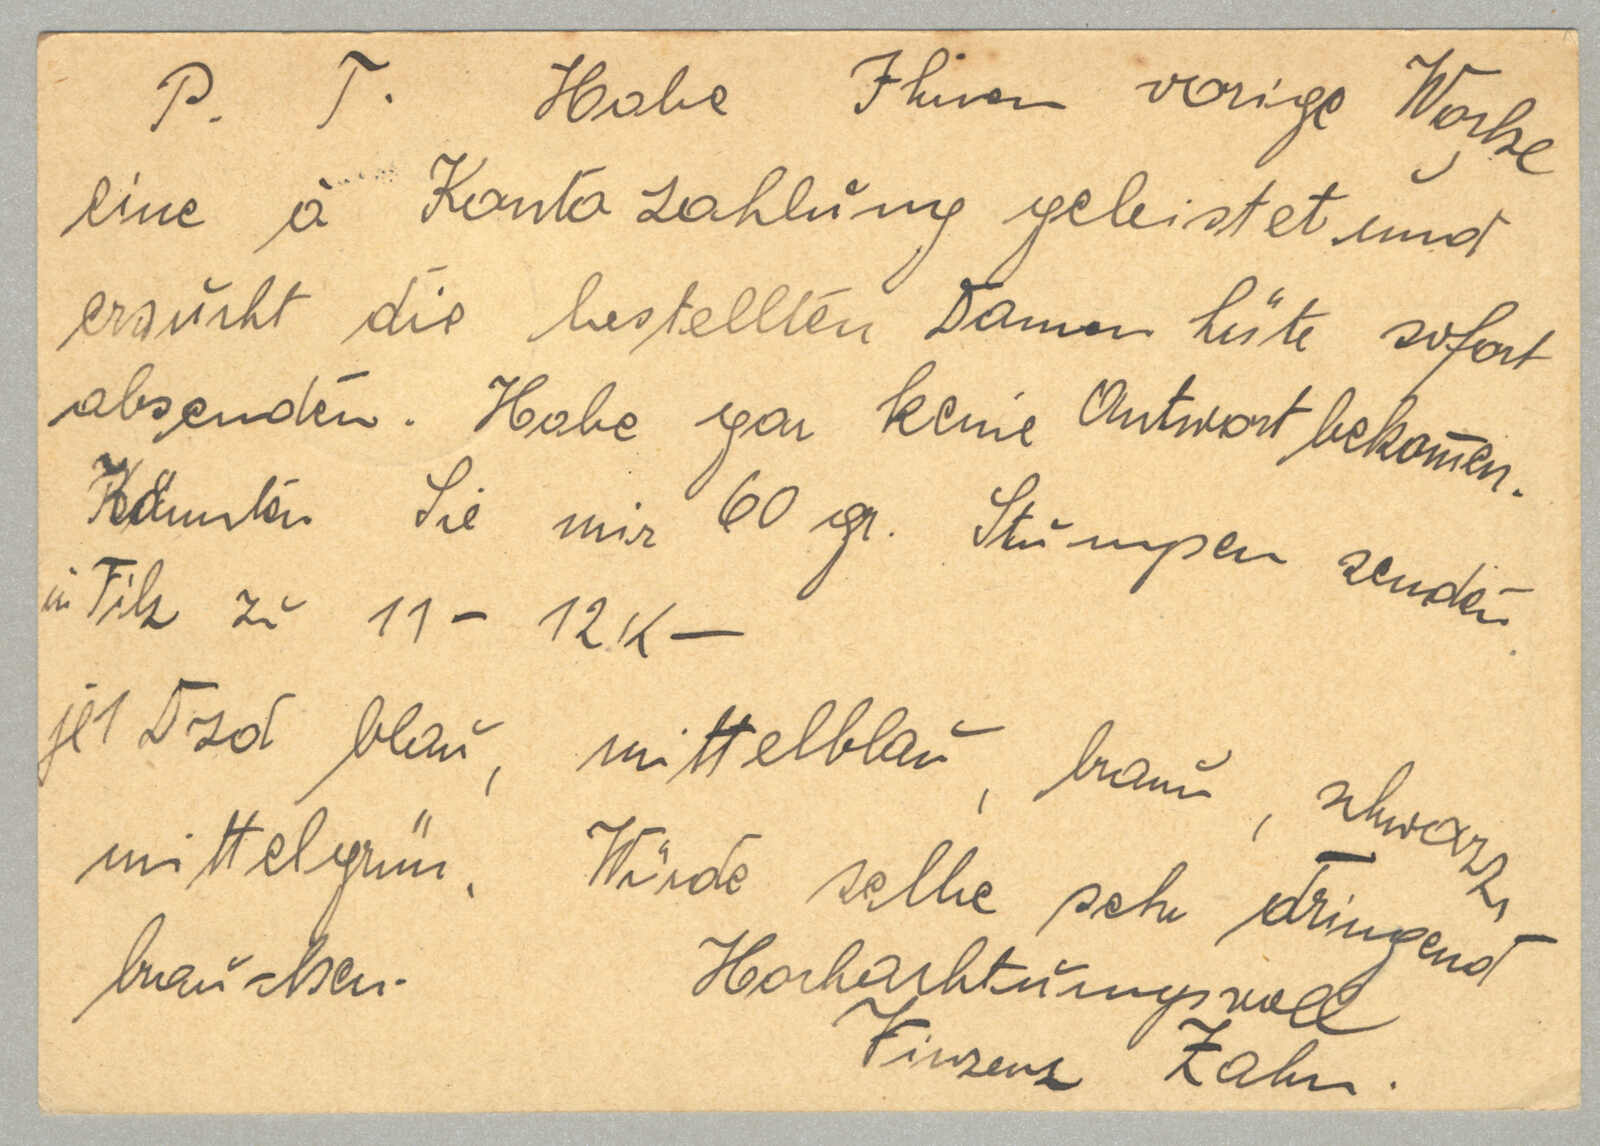 P. T. Habe Ihnen vorige Woche
eine à Konto zahlung geleistet und
ersucht die bestellten Damen hüte sofort
absenden. Habe gar keine Antwort bekom̅en.
Könnten Sie mir 60 gr. Stumpen senden
in Filz zu 11 - 12 K —
je 1 Dzd blau, mittelblau, braun, schwarz,
mittelgrün. Würde selbe sehr dringend
brauchen. Hochachtungsvoll
Vinzenz Zahn.